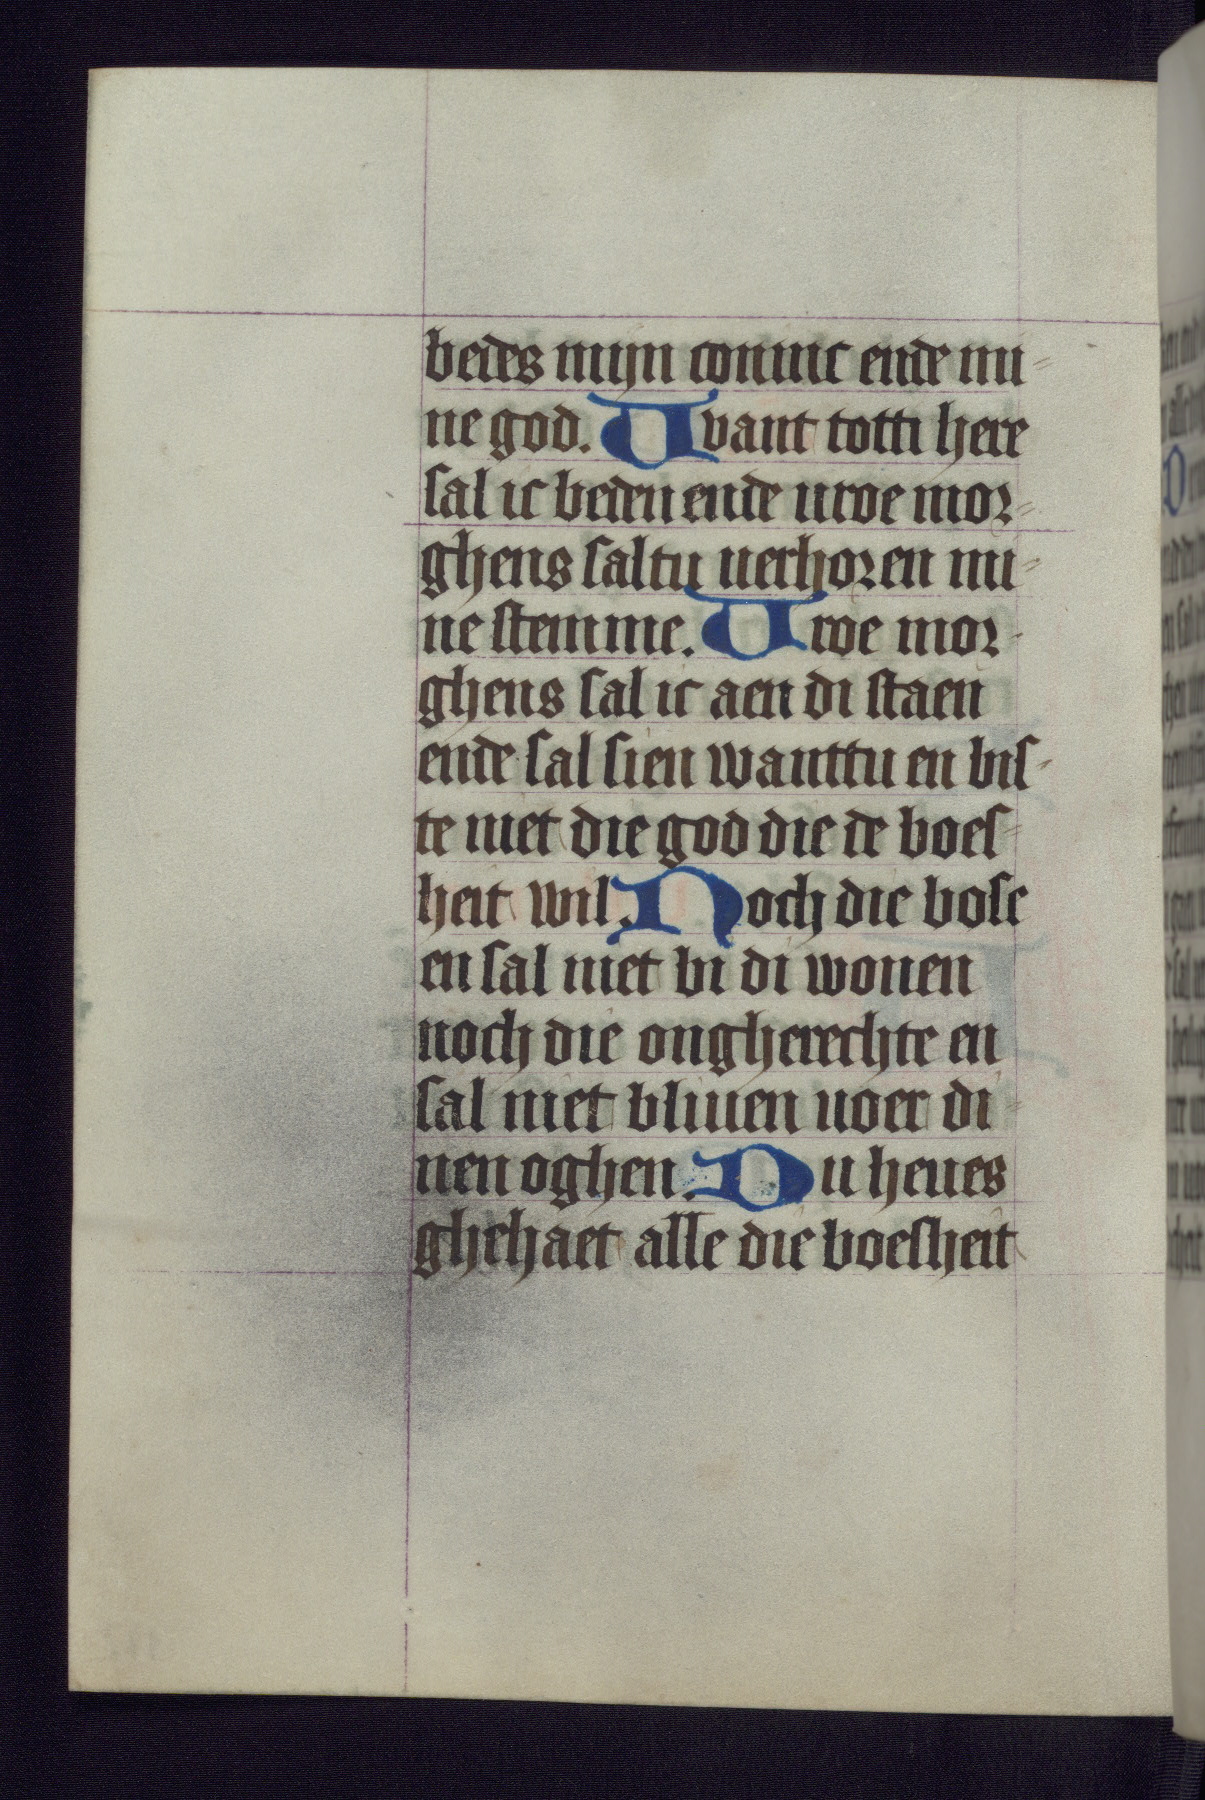 bedes mijn coninc ende mi-
ne god. Uvant totti here
sal ic beden ende uroe mor-
ghens saltu uerhoren mi-
ne stemme. Uroe mor-
ghens sal ic aen di staen
ende sal sien wanttu en bis-
te niet die god die de boes-
heit wil. Noch die bose
en sal niet bi di wonen
noch die ongherechte en
sal niet bliuen uoer di-
nen oghen. Du heues
ghehaet alle die boesheit